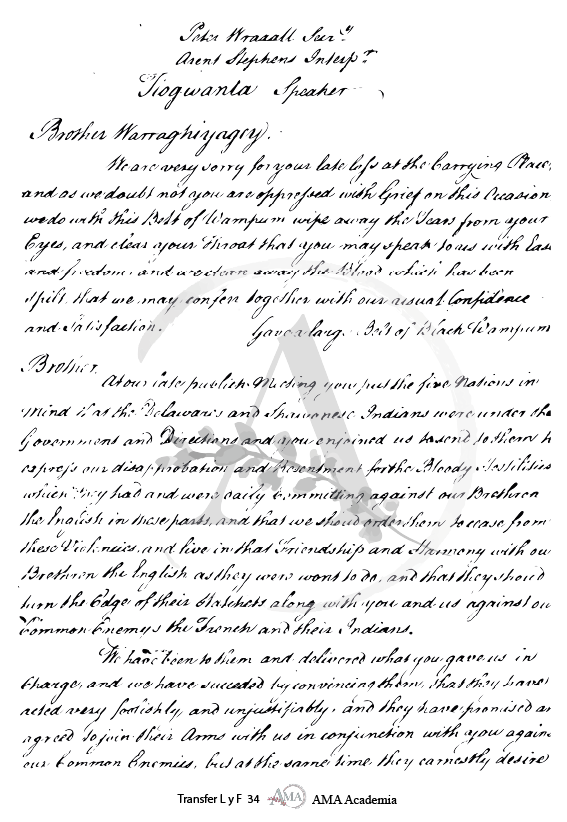 Peter Wraxall Secr.y
Arent Stephens Interp.r
Tiogwanta Speaker
Brother Warraghiyagey.
We are very sorry for your late loss at the Carrying Place,
and as we doubt not you are oppressed with Grief on this Occasion
we do with this Belt of Wampum wipe away the Tears from your
Eyes, and clear your Throat that you may speak to us with Ease
and freedom, and we clean away the Blood which has been
spilt that we may confer together with our usual Confidence
and Satisfaction.
Gave a large Belt of Black Wampum
Brother.
At our late publick Meeting you put the five Nations in
mind that the Delawares and Shawanese Indians were under the
Government and Directions and you enjoined us to send to them to
express our disapprobation and Resentment for the Bloody Hostilities
which they had and were daily committing against our Brethren
the English in these parts, and that we should order them to cease from
these Violencies, and live in that Friendship and Harmony with our
Brethren the English as they were wont to do, and that they should
turn the Edge of their Hatchets along with you and us against our
Common Enemys the French and their Indians.
We have been to them and delivered what you gave us in
Charge, and we have succeded by convincing them, that they have
acted very foolishly, and unjustifiably, and they have promised and
agreed to join their Arms with us in conjunction with you against
our Common Enemies, but at the same time they earnestly desire
Transfer L y F 34 AMA AMA Academia